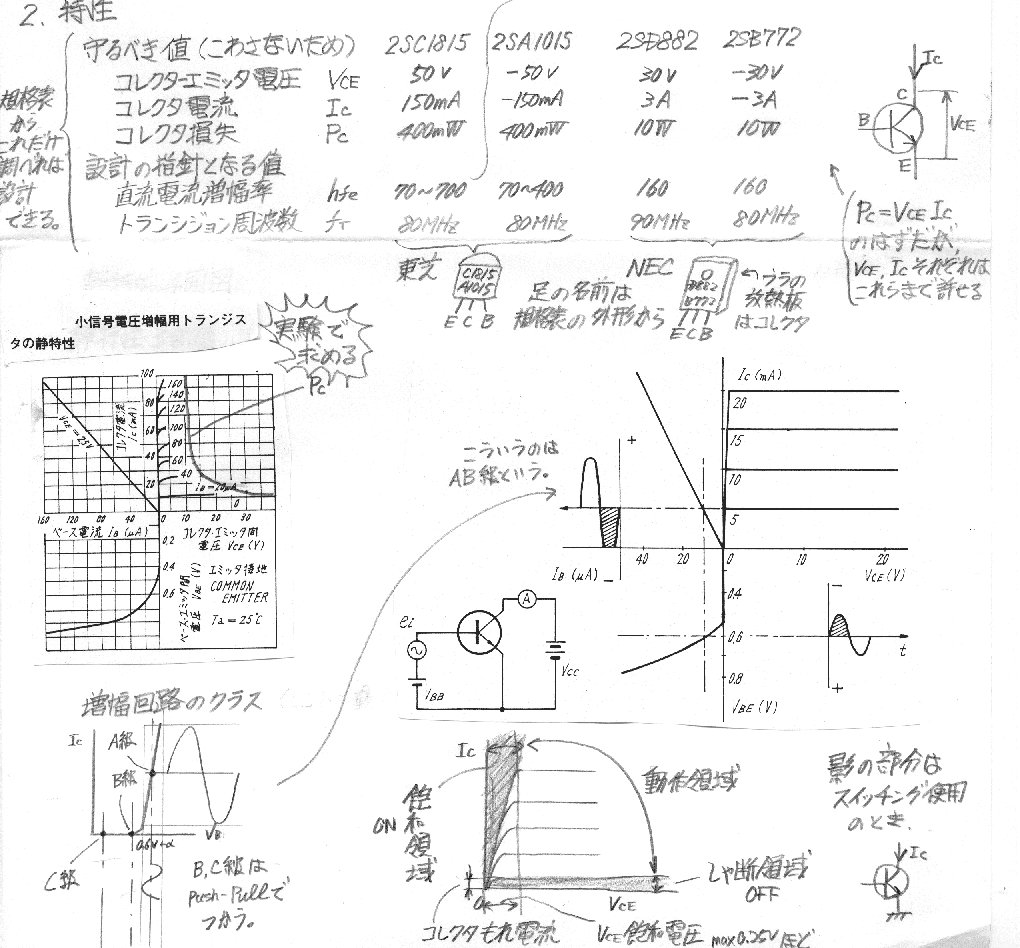 2. 特性
守るべき値(こわさないため) 2SC1815 2SA1015 2SD882 2SB772
コレクタ-エミッタ電圧 VCE 50V -50V 30V -30V
コレクタ電流 Ic 150mA -150mA 3A -3A
コレクタ損失 Pc 400mW 400mW 10W 10W
設計の指針となる値
直流電流増幅率 hfe 70~700 70~400 160 160
トランジション周波数 fT 80MHz 80MHz 90MHz 80MHz
規格表
から
これだけ
調べれば
設計
できる。
Ic
C
B
VCE
E
Pc=VCE Ic
のはずだが、
VCE, Ic それぞれは
これらまで許せる
東芝
C1815
A1015
E C B
足の名前は
規格表の外形から
NEC
D882
B772
E C B
←ウラの
放熱板
はコレクタ
小信号電圧増幅用トランジス
タの静特性
実験で
求める
Pc
100
80
60
40
20
コレクタ電流
Ic (mA)
160
140
120
100
80
60
40
VCE=25V
0
160 120 80 40 0 10 20 30
ベース電流 IB (μA)
コレクタ・エミッタ間
電圧 VCE (V)
0.2
0.4
0.6
ベース・エミッタ間
電圧 VBE (V)
エミッタ接地
COMMON
EMITTER
Ta=25℃
こういうのは
AB級という。
+
−
Ic (mA)
20
15
10
5
40 20 0 10 20
IB (μA)
VCE (V)
0.4
0.6
0.8
−
+
t
ei
A
VCC
増幅回路のクラス
Ic
A級
B級
C級
0.6V+α
VB
B,C級は
Push-Pullで
つかう。
Ic
飽和領域
ON
動作領域
しゃ断領域
OFF
0
VCE
コレクタもれ電流
VCE飽和電圧 max0.25Vほど
影の部分は
スイッチング使用
のとき.
Ic